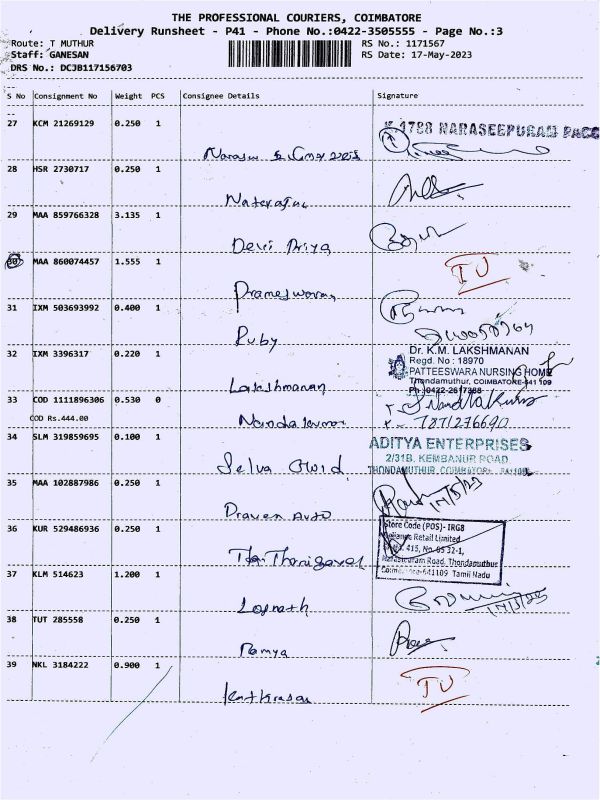 THE PROFESSIONAL COURIERS, COIMBATORE
Delivery Runsheet - P41 - Phone No.:0422-3505555 - Page No.:3
Route: T MUTHUR RS No.: 1171567
Staff: GANESAN RS Date: 17-May-2023
DRS No.: DCJB117156703
S No Consignment No Weight PCS Consignee Details Signature
27 KCM 21269129 0.250 1
1788 NARASEEPURAM PACC
28 HSR 2730717 0.250 1
Nataraju
29 MAA 859766328 3.135 1
Devi Priya
30 MAA 860074457 1.555 1
TU
Prameswaran
31 IXM 503693992 0.400 1
Ruby
32 IXM 3396317 0.220 1
Dr. K.M. LAKSHMANAN
Regd. No : 18970
PATTEESWARA NURSING HOME
Thondamuthur, COIMBATORE-641 109
Ph: 0422-2617388
Lakshmanan
33 COD 1111896306 0.530 0
COD Rs.444.00
Nandakumar
7871276690
34 SLM 319859695 0.100 1
ADITYA ENTERPRISES
2/31B, KEMBANUR ROAD
THONDAMUTHUR, COIMBATORE
Selva
35 MAA 102887986 0.250 1
17/5/23
Draven Auto
36 KUR 529486936 0.250 1
Store Code (POS)- IRG8
Reliance Retail Limited
415, No.
Narasipuram Road, Thondamuthur
641109 Tamil Nadu
37 KLM 514623 1.200 1
17/5/23
38 TUT 285558 0.250 1
Ramya
39 NKL 3184222 0.900 1
TU